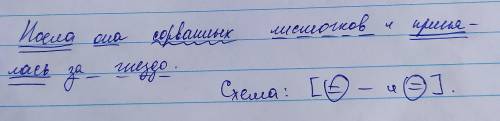 Поела она сорванных листочков и приня-
лась за гнездо.
Схема: [(=) – и (=)].